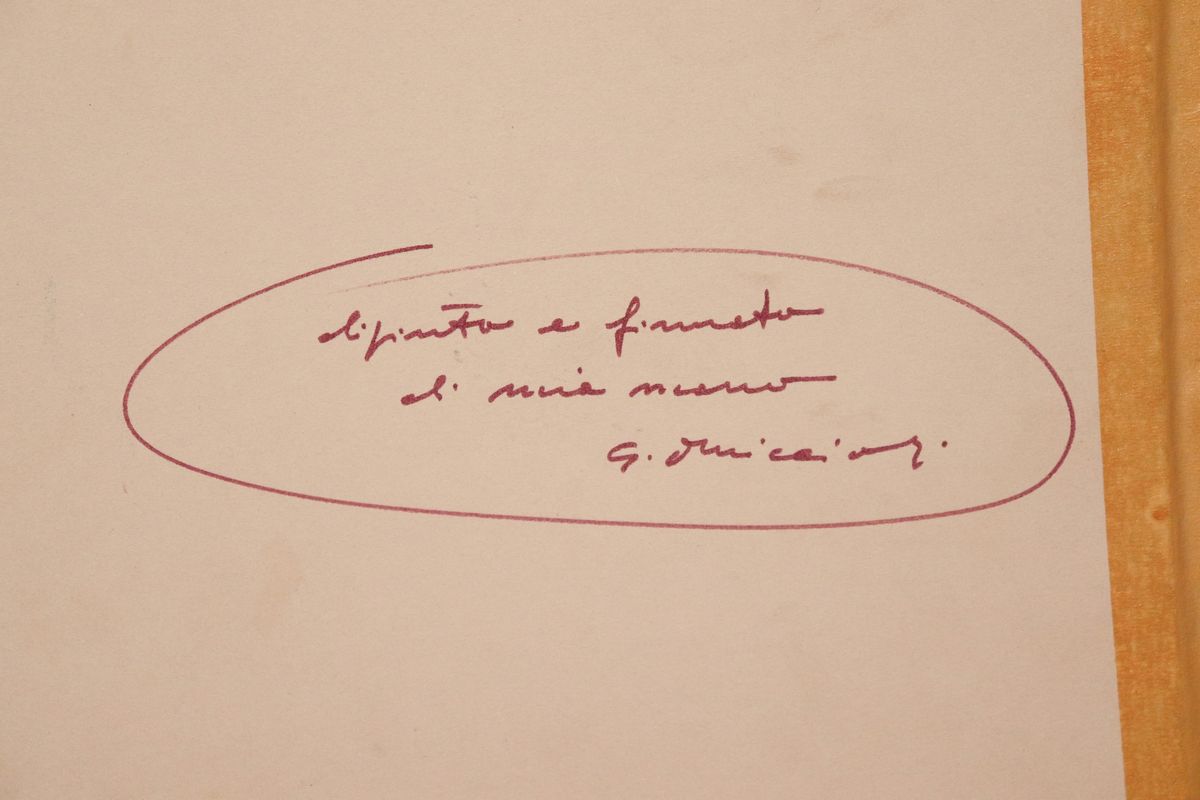 dipinto e firmato
di mia mano
G. Omiccioli.